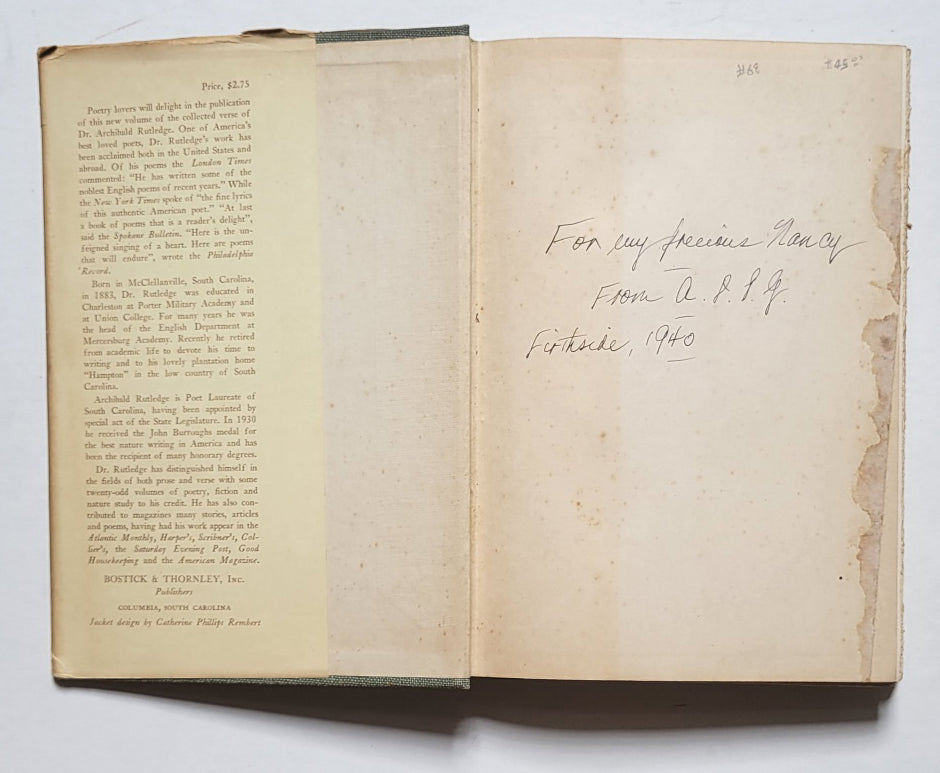 Price, $2.75
Poetry lovers will delight in the publication
of this new volume of the collected verse of
Dr. Archibald Rutledge. One of America's
best loved poets, Dr. Rutledge's work has
been acclaimed both in the United States and
abroad. Of his poems the London Times
commented: "He has written some of the
noblest English poems of recent years." While
the New York Times spoke of "the fine lyrics
of this authentic American poet." "At last
a book of poems that is a reader's delight",
said the Spokane Bulletin. "Here is the un-
feigned singing of a heart. Here are poems
that will endure", wrote the Philadelphia
Record.
Born in McClellanville, South Carolina,
in 1883, Dr. Rutledge was educated in
Charleston at Porter Military Academy and
at Union College. For many years he was
the head of the English Department at
Mercersburg Academy. Recently he retired
from academic life to devote his time to
writing and to his lovely plantation home
"Hampton" in the low country of South
Carolina.
Archibald Rutledge is Poet Laureate of
South Carolina, having been appointed by
special act of the State Legislature. In 1930
he received the John Burroughs medal for
the best nature writing in America and has
been the recipient of many honorary degrees.
Dr. Rutledge has distinguished himself in
the fields of both prose and verse with some
twenty-odd volumes of poetry, fiction and
nature study to his credit. He has also con-
tributed to magazines many stories, articles
and poems, having had his work appear in the
Atlantic Monthly, Harper's, Scribner's, Col-
lier's, the Saturday Evening Post, Good
Housekeeping and the American Magazine.
BOSTICK & THORNLEY, Inc.
Publishers
COLUMBIA, SOUTH CAROLINA
Jacket design by Catherine Phillips Rembert
$45.00
For my precious Nancy
From A.
1940